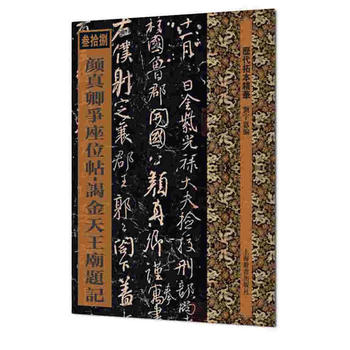 歷代拓本精華
上海辭書出版社
十一月日金紫光祿大夫檢校刑部尚
柱國魯郡開國公顏真卿謹寓
右僕射定襄郡王郭公閤下蓋
叁拾捌
顏真卿爭座位帖·謁金天王廟題記